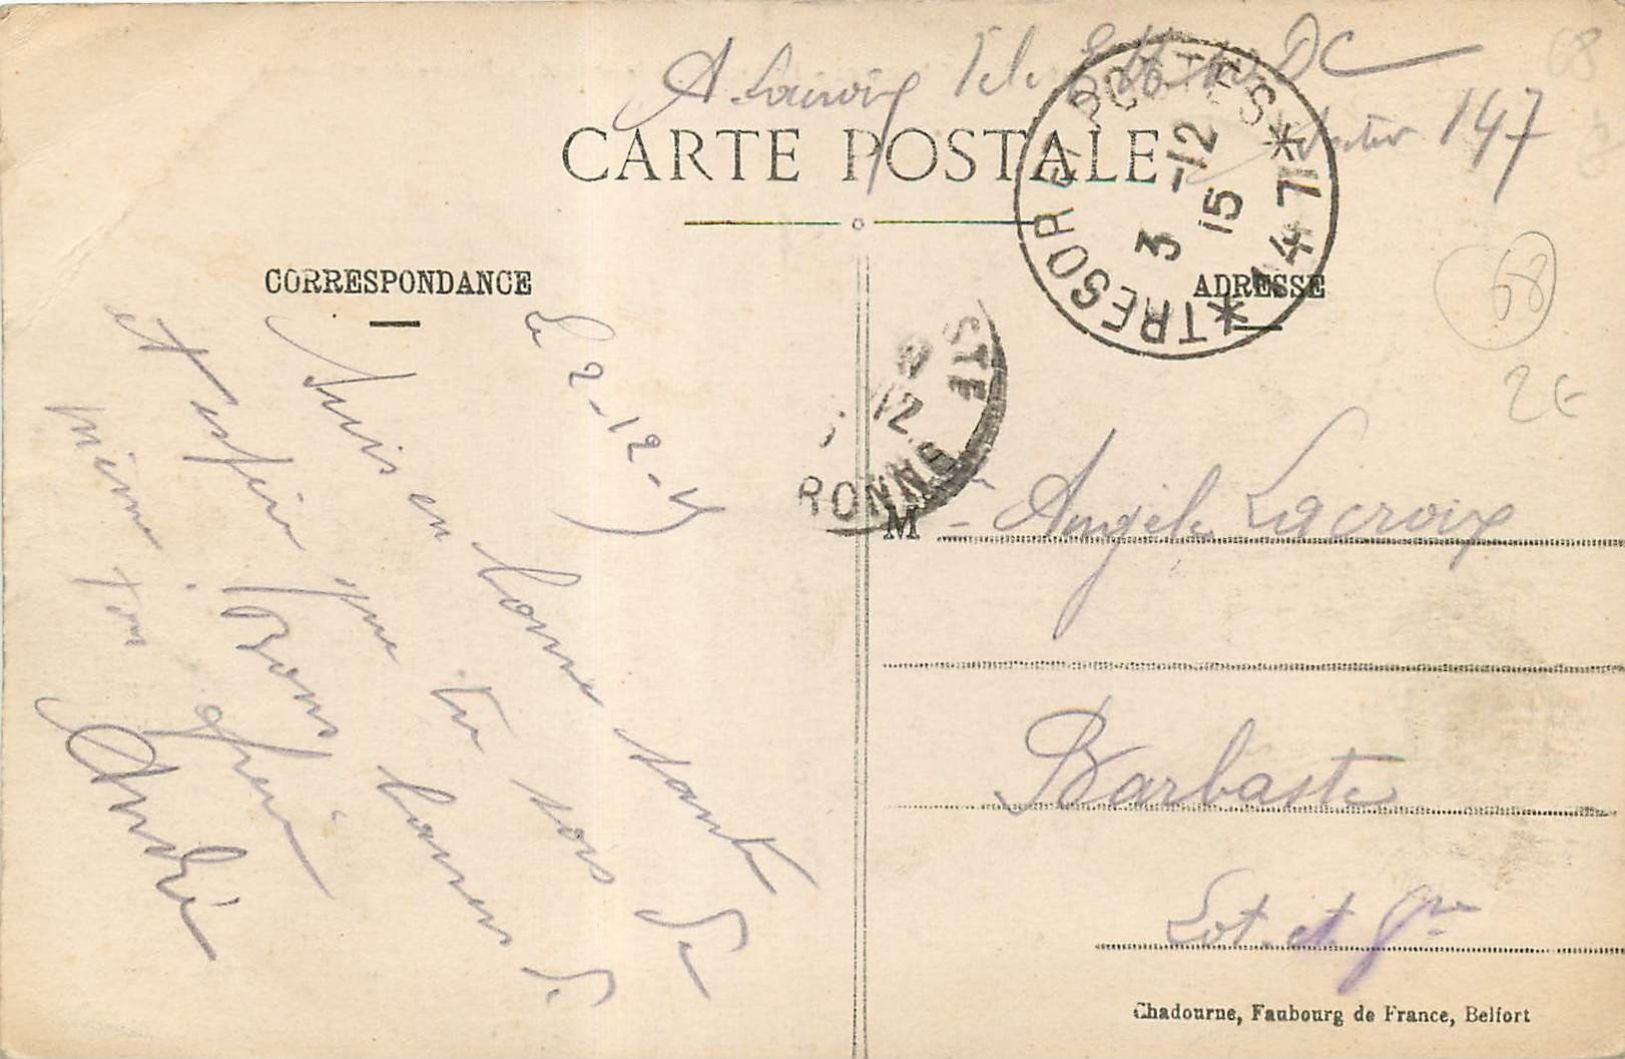 A Lacroix Tel
DC
Secteur 147
CARTE POSTALE
TRESOR ET POSTES * 147 *
3 -12
15
68
CORRESPONDANCE
ADRESSE
68
2€
Le 2-12-15
Suis en bonne santé
et espère que tu sois de
même. Bons baisers de
ton frère
André
STE
12
RONNE
M Angèle Lacroix
Barbaste
Lot et Gne
Chadourne, Faubourg de France, Belfort